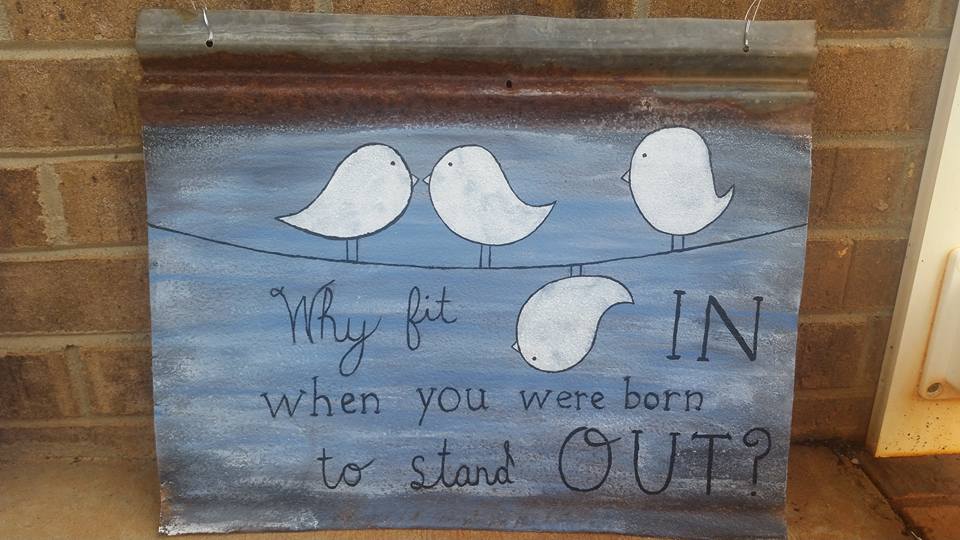 Why fit IN
when you were born
to stand OUT?